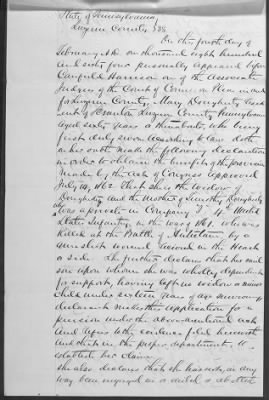 State of Pennsylvania
Luzerne County, SS.
On this fourth day of
February A.D. on thousand eight hundred
and sixty four personally appeared before
Harrison one of the associate
Judges of the Court of Com. Pleas in and
for Luzerne County, Mary Dougherty a resi-
dent of Scranton Luzerne County Pennsylvania
aged sixty years or thereabouts, who being
first duly sworn according to law doth
on her oath make the following declaration
in order to obtain the benefit of the provision
made by the act of Congress approved
July 14, 1862 That she is the widow of
Dougherty and the Mother of Timothy Dougherty
who was a private in Company 4th United
States Infantry, in the war of 1861, who was
killed at the Battle of Antietam by a
gunshot wound received in the Head
or side. She further declares that her said
son upon whom she was wholly dependent
for support, having left no widow or minor
child under sixteen years of age surviving
declarant makes this application for a
pension under the above mentioned act
and refers to the evidence filed herewith
and that in the proper department, to
establish her claim
She also declares that she has not, in any
way been engaged in or aided or abetted